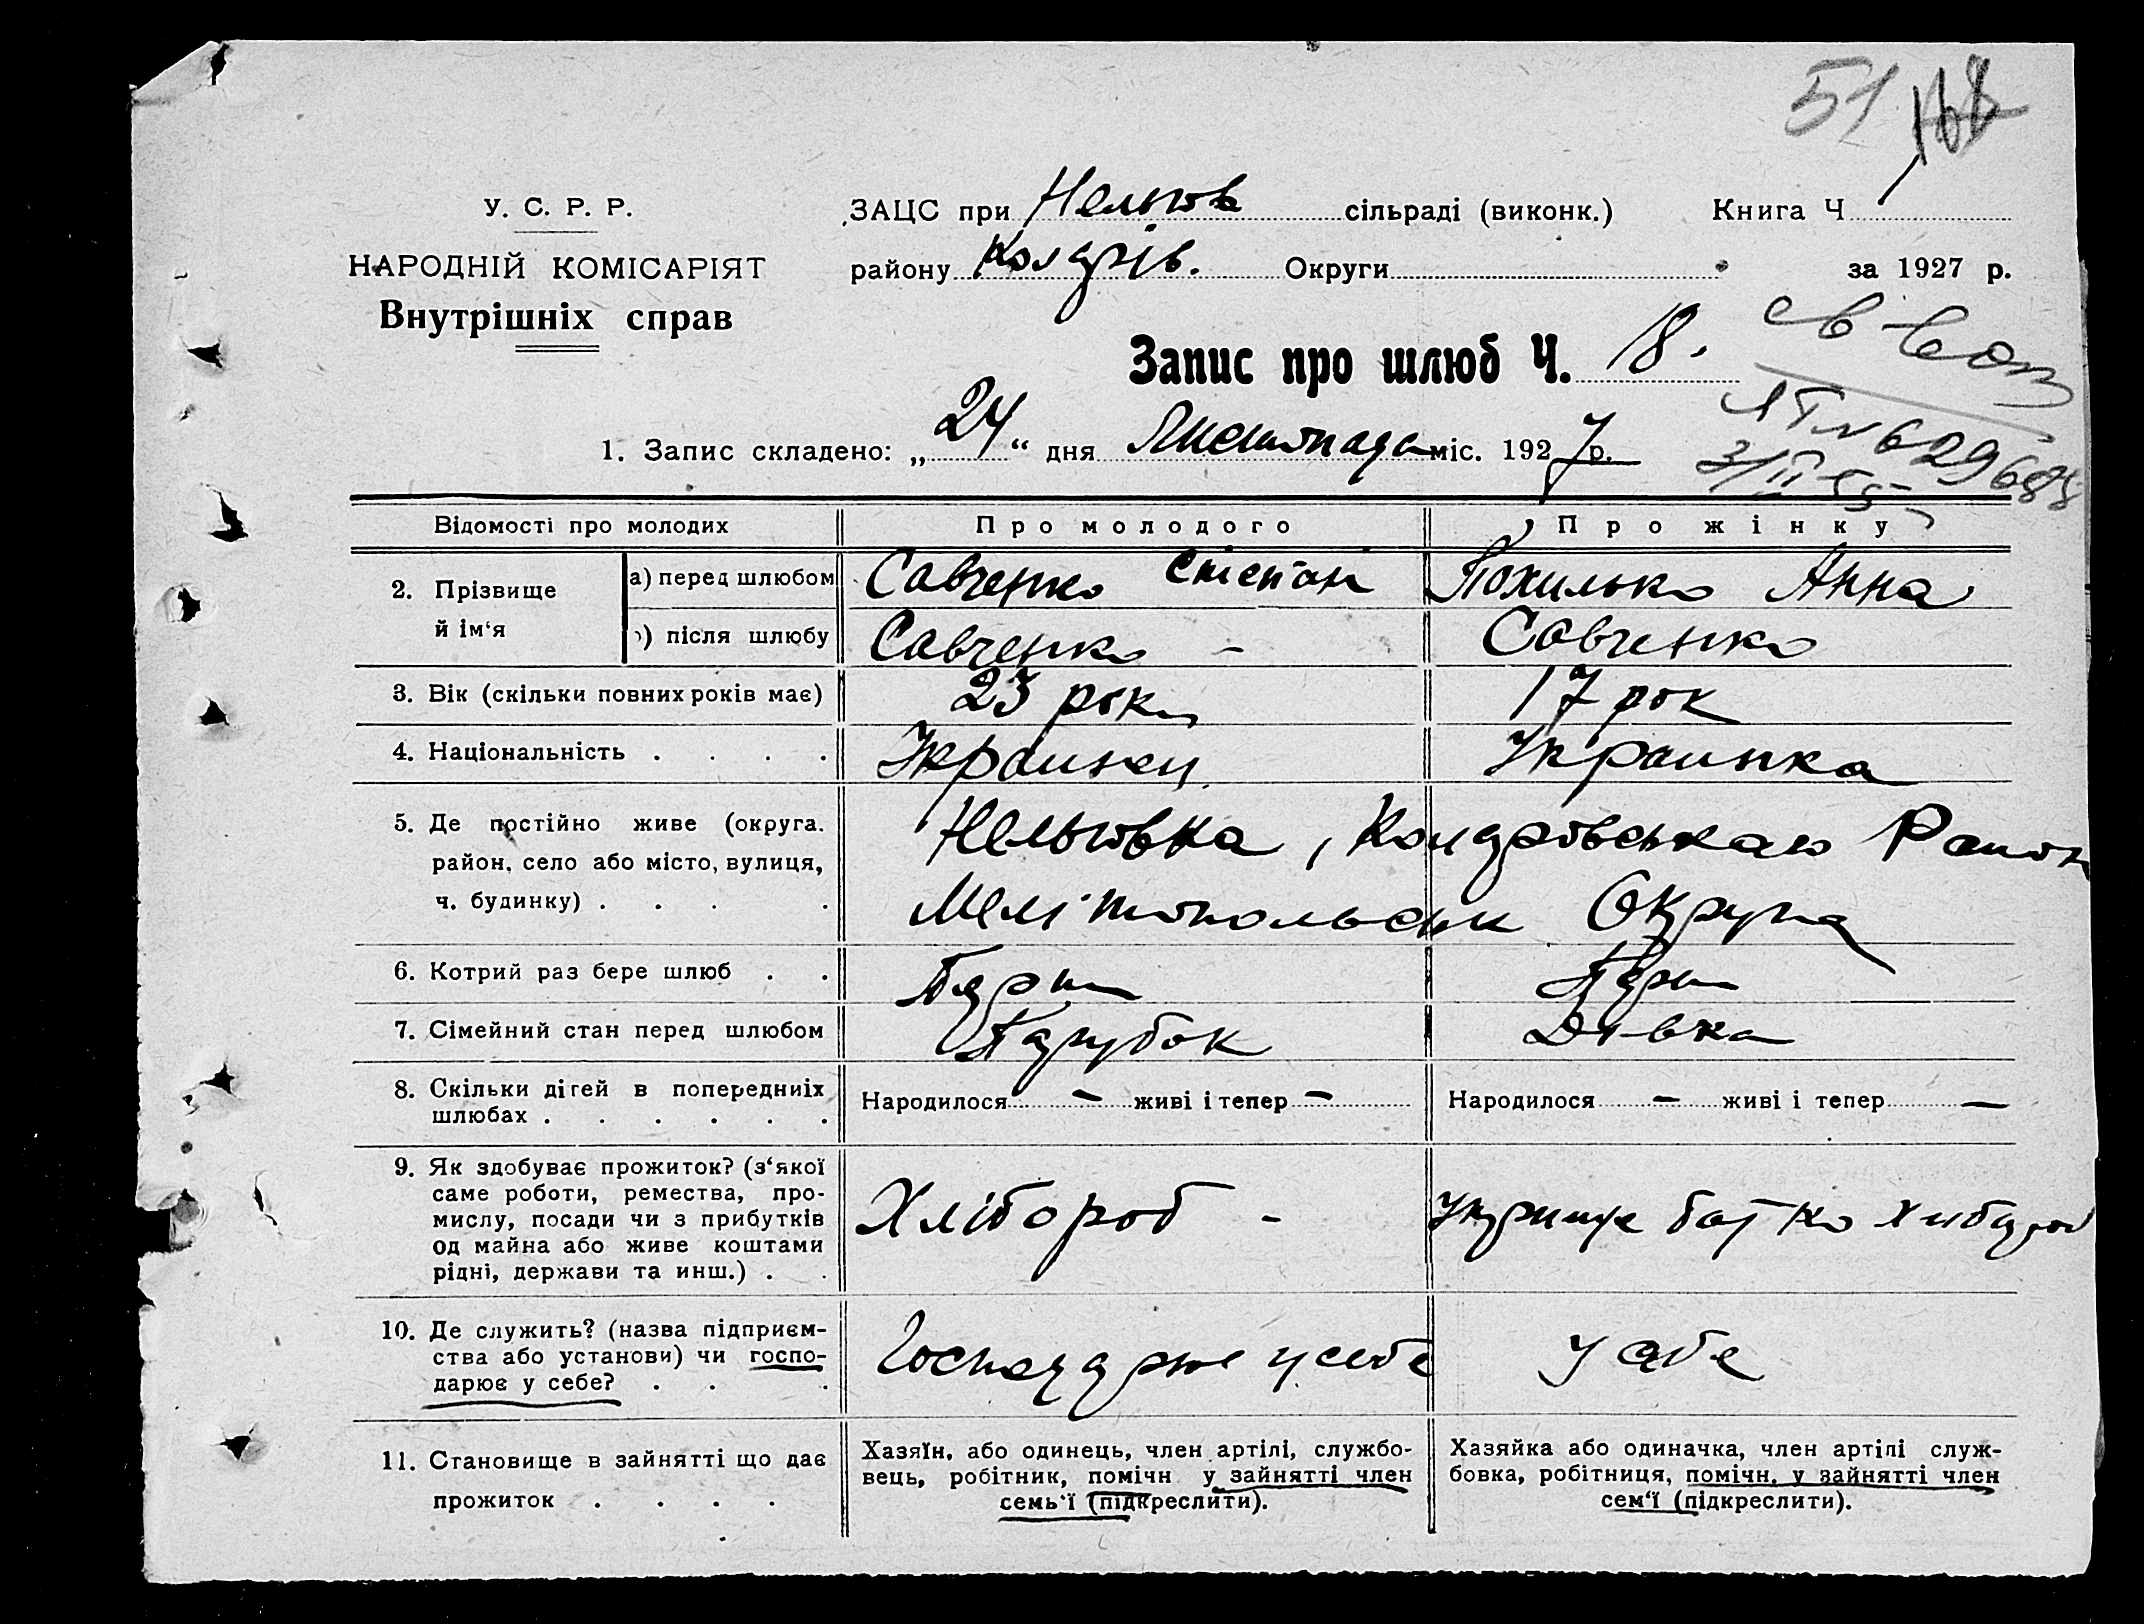 51
У. С. Р. Р.
НАРОДНІЙ КОМІСАРІЯТ
Внутрішніх справ
ЗАЦС при Нельгов сільраді (виконк.) Книга Ч.
району Колярів. Округи за 1927 р.
Запис про шлюб Ч. 18.
1. Запис складено: „24“ дня Листопада міс. 1927 р.
Відомості про молодих Про молодого Про жінку
2. Прізвище й ім‘я
а) перед шлюбом Савченко Степан Похилько Анна
) після шлюбу Савченко - Савченко
3. Вік (скільки повних років має) 23 рок 17 рок
4. Національність . . . . Украинец Украинка
5. Де постійно живе (округа.
район, село або місто, вулиця,
ч. будинку) . . . .
Нельговка, Район
Мелітопольськ Округа
6. Котрий раз бере шлюб . . Перш Перш
7. Сімейний стан перед шлюбом Парубок Дівка
8. Скільки дітей в попередниіх
шлюбах . . . . . .
Народилося — живі і тепер — Народилося — живі і тепер —
9. Як здобуває прожиток? (з‘якої
саме роботи, ремества, про-
мислу, посади чи з прибутків
од майна або живе коштами
рідні, держави та инш.) . .
Хлібороб - батько
10. Де служить? (назва підприєм-
ства або установи) чи госпо-
дарює у себе? . . .
Господарює у себе у себе
11. Становище в зайнятті що дає
прожиток . . . .
Хазяїн, або одинець, член артілі, службо-
вець, робітник, помічн у зайнятті член
семь‘ї (підкреслити).
Хазяйка або одиначка, член артілі служ-
бовка, робітниця, помічн. у зайнятті член
сем‘ї (підкреслити).